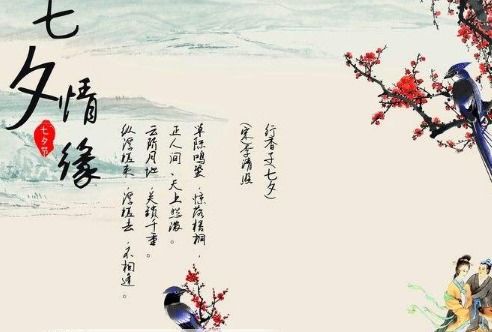 七夕
情缘
七夕节
行香子七夕)
(宋李清照
草际鸣蛩,惊落梧桐,
正人间、天上愁浓。
云阶月地,关锁千重。
纵浮槎来,浮槎去,不相逢。